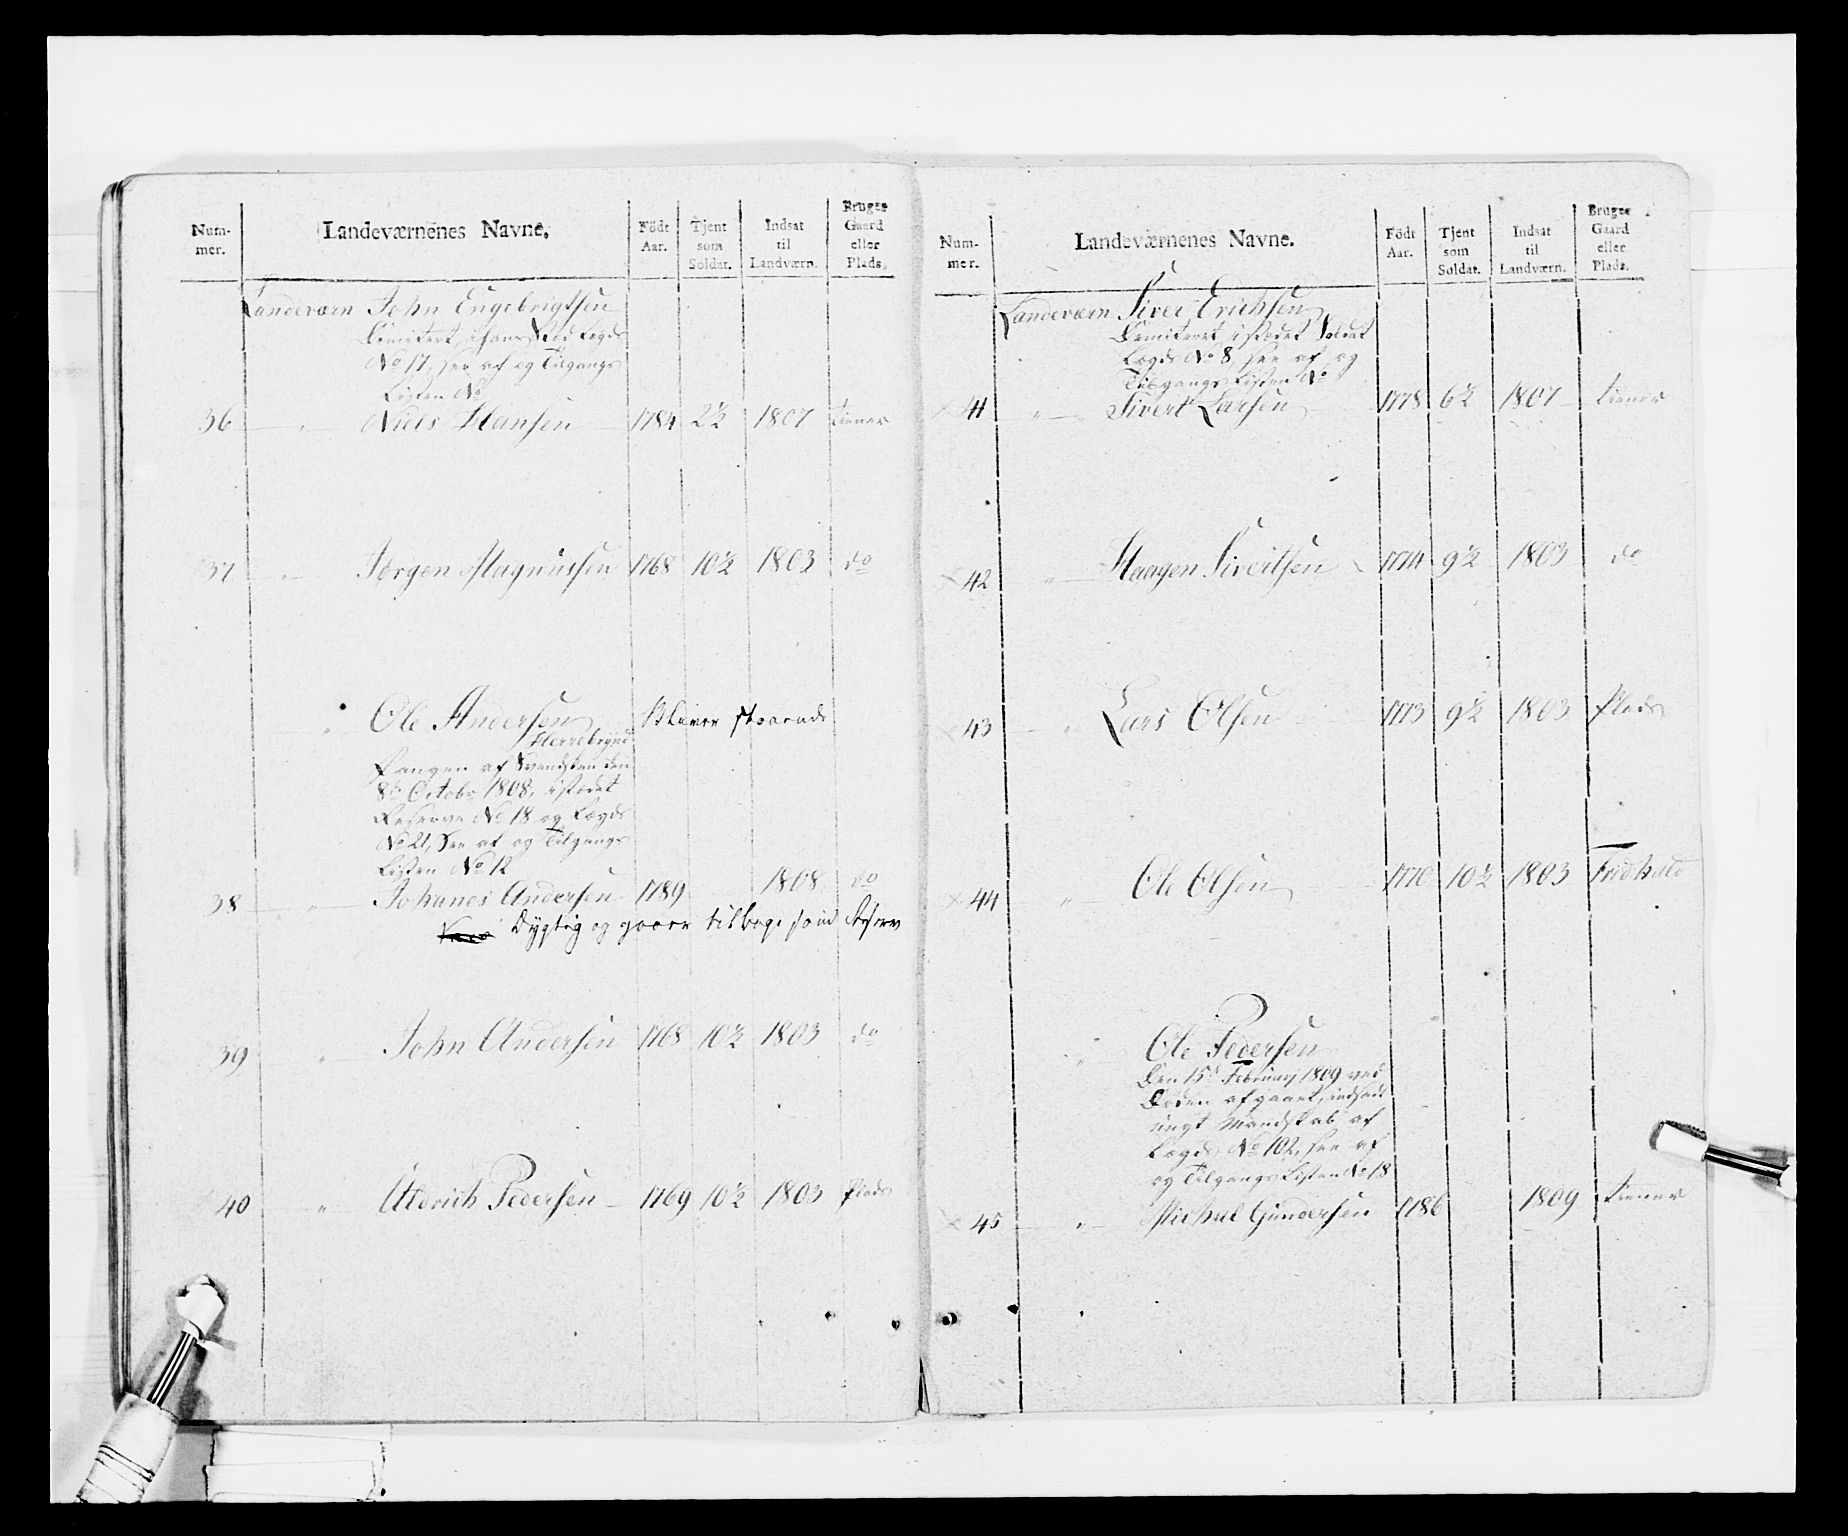 Num-
mer.
Landeværnenes Navne.
Födt
Aar.
Tjent
som
Soldat.
Indsat
til
Landværn.
Bruger
Gaard
eller
Plads.
Landeværn John Engebrigtsen
Dimitert, Lægd
No 17, see af og Tilgangs
Listen No
36 " Niels Hansen 1784 2½ 1807 tiener
37 " Jörgen Magnussen 1768 10½ 1803 do
" Ole Andersen Bliver staaende
fangen af Svendsken den
8de Octobr 1808, istædet
Reserve No 18 og Lægd
No 21, See af og Tilgangs
Listen No 12
38 " Johanes Andersen 1789 1808 do
Dygtig og gaaer tilbage som Reserv
39 " John Andersen 1768 10½ 1803 do
40 " Uldrich Pedersen 1769 10½ 1803 Plads
Num-
mer.
Landeværnenes Navne.
Födt
Aar.
Tjent
som
Soldat.
Indsat
til
Landværn.
Bruger
Gaard
eller
Plads.
Landeværn Siver Erichsen
Dimiteret, istædet Soldat
Lægd No 8, see af og
Tilgangs Listen No
× 41 " Sivert Larsen 1778 6½ 1807 tiener
× 42 " Haagen Sivertsen 1774 9½ 1803 do
× 43 " Lars Olsen 1773 9½ 1803 Plads
× 44 " Ole Olsen 1770 10½ 1803 Fridhald
" Ole Pedersen
Den 15de Februarj 1809 ved
Döden afgaaet, indsadt
ungt Mandskab af
Lægd No 102, see af
og Tilgangs Listen No 18
× 45 " Michael Gundersen 1786 1809 tiener